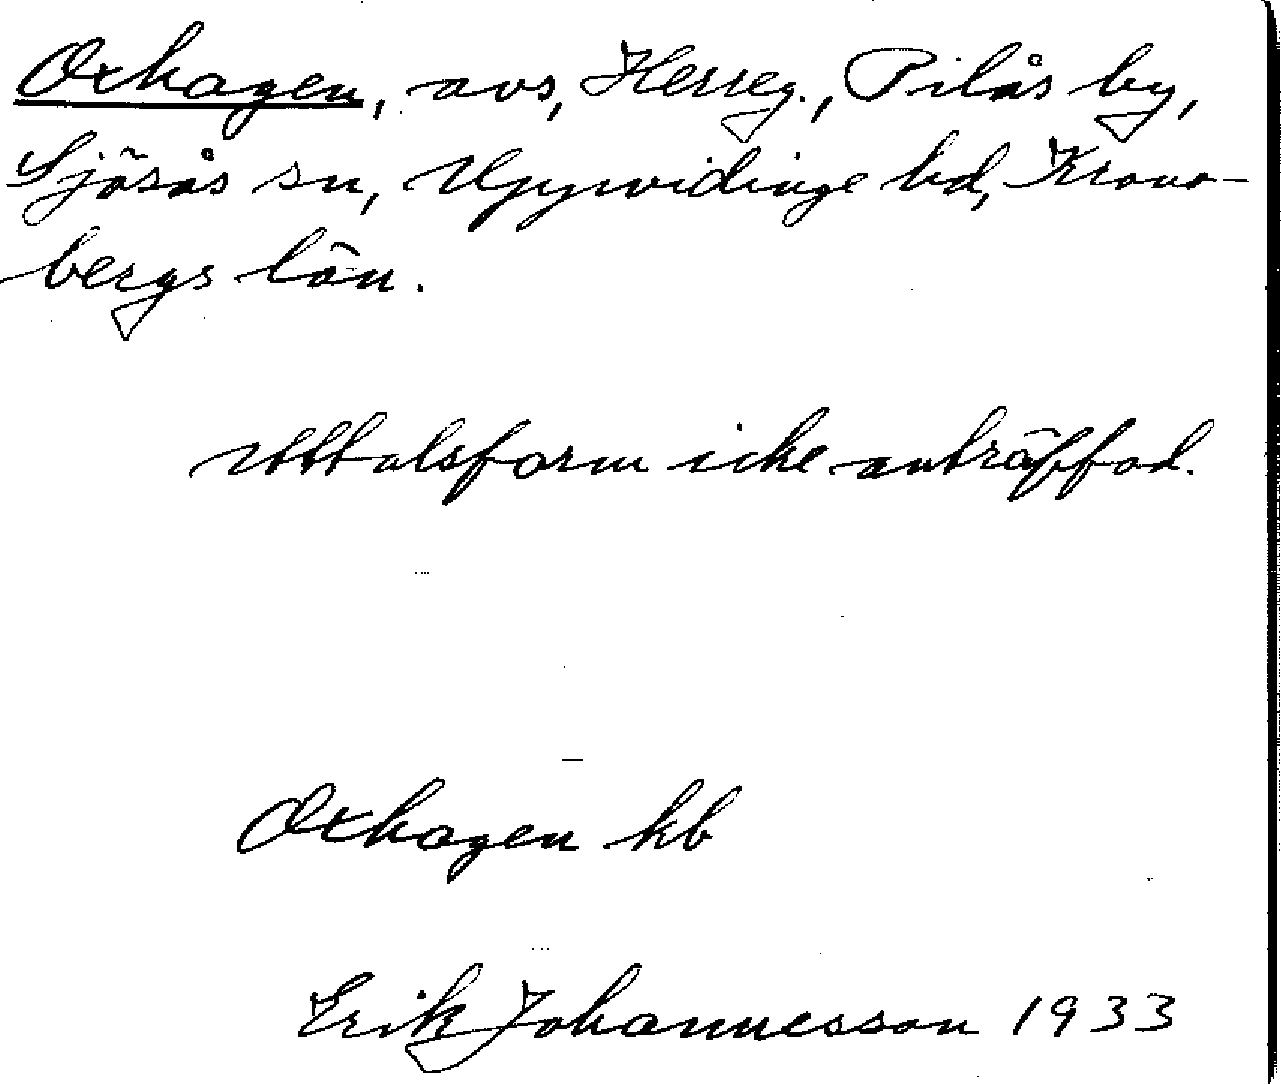 Oxhagen, avs, Herreg., Pilås by,
Sjösås sn, Uppvidinge hd, Krono-
bergs län.
Uttalsform icke anträffad.
Oxhagen kb
Erik Johannesson 1933